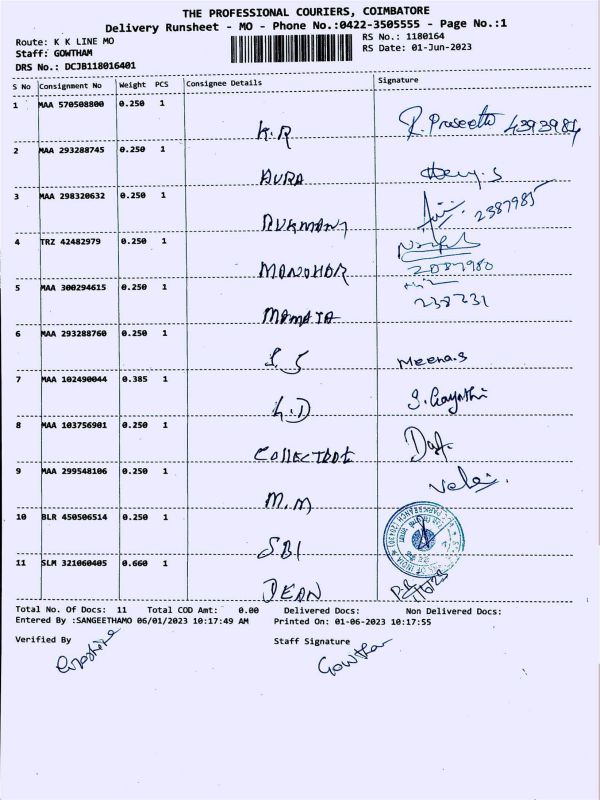 THE PROFESSIONAL COURIERS, COIMBATORE
Delivery Runsheet - MO - Phone No.:0422-3505555 - Page No.:1
Route: K K LINE MO
Staff: GOWTHAM
DRS No.: DCJB118016401
RS No.: 1180164
RS Date: 01-Jun-2023
S No Consignment No Weight PCS Consignee Details Signature
1 MAA 570508800 0.250 1
K.R R. Praseetha 4393984
2 MAA 293288745 0.250 1
AURA
3 MAA 298320632 0.250 1
RUKMANI 2387985
4 TRZ 42482979 0.250 1
MANOHAR 2087980
5 MAA 300294615 0.250 1
MAMATA 238231
6 MAA 293288760 0.250 1
S.S Meena.S
7 MAA 102490044 0.385 1
L.D S. Gayathi
8 MAA 103756901 0.250 1
COLLECTROE
9 MAA 299548106 0.250 1
M.M Velai.
10 BLR 450506514 0.250 1
SBI
11 SLM 321060405 0.660 1
DEAN
Total No. Of Docs: 11 Total COD Amt: 0.00 Delivered Docs: Non Delivered Docs:
Entered By :SANGEETHAMO 06/01/2023 10:17:49 AM Printed On: 01-06-2023 10:17:55
Verified By Staff Signature
Gowtham